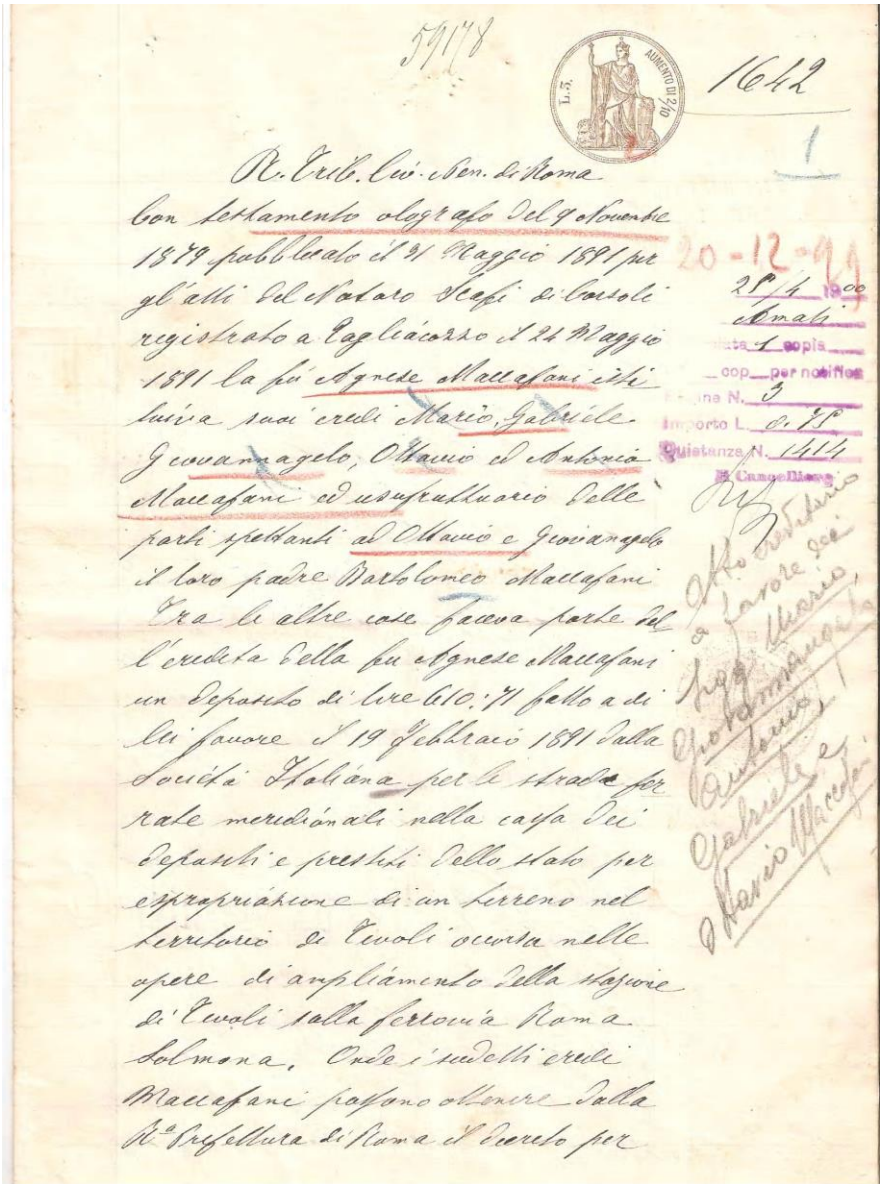 59178
L. 3.
AUMENTO DI 2/10
1642
1
R. Trib. Civ. Pen. di Roma
Con testamento olografo del 9 Novembre
1879 pubblicato il 21 Maggio 1891 per
gl'atti del Notaro Scafi di Carsoli
registrato a Tagliacozzo il 24 Maggio
1891 la fù Agnese Maccafani isti
tuiva suoi eredi Mario, Gabriele
Giovannagelo, Ottavio ed Antonio
Maccafani ed usufruttuario delle
parti spettanti ad Ottavio e Giovanagelo
il loro padre Bartolomeo Maccafani
Tra le altre cose faceva parte del
l'eredita della fu Agnese Maccafani
un deposito di lire 610:71 fatto a di
lei favore il 19 Febbraio 1891 dalla
Società Italiana per le strade fer
rate meridionali nella cassa dei
depositi e prestiti dello stato per
espropriazione di un terreno nel
territorio di Tivoli occorsa nelle
opere di ampliamento della stazione
di Tivoli sulla ferrovia Roma
Solmona. Onde i sudetti eredi
Maccafani possono ottenere dalla
Ra Prefettura di Roma il decreto per
20-12-99
28/4 1900
Amati
1 copia
cop per notifica
N. 3
Importo L. 0.75
Quietanza N. 1414
Il Cancelliere
Atto ereditario
a favore dei
Sigg Mario,
Giovannangelo
Antonio,
Gabriele e
Ottavio Maccafani